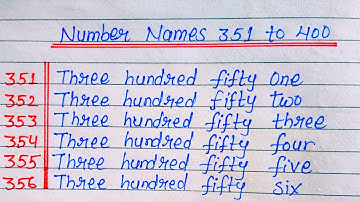 Number Names 351 to 400
351 Three hundred fifty one
352 Three hundred fifty two
353 Three hundred fifty three
354 Three hundred fifty four
355 Three hundred fifty five
356 Three hundred fifty six